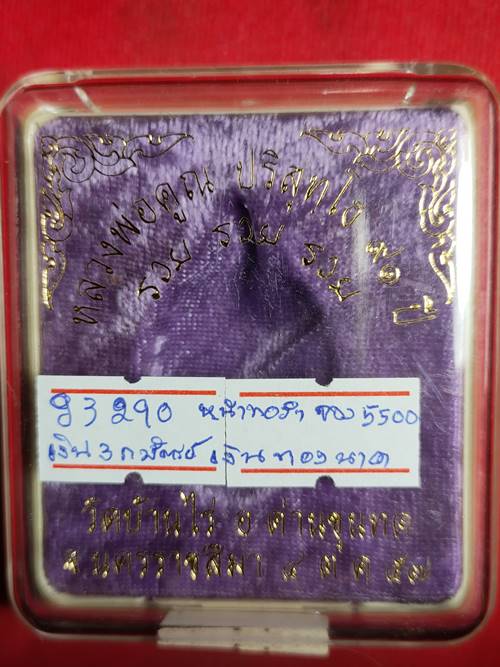 หลวงพ่อคูณ ปริสุทโธ ๗๑ ปี
รวย รวย รวย
93290 หน้าทองคำ จอง 5500
เงิน 3 กษัตริย์ เงิน ทอง นาค
วัดบ้านไร่ อ ด่านขุนทด
จ.นครราชสีมา ๔ ต ค ๓๗